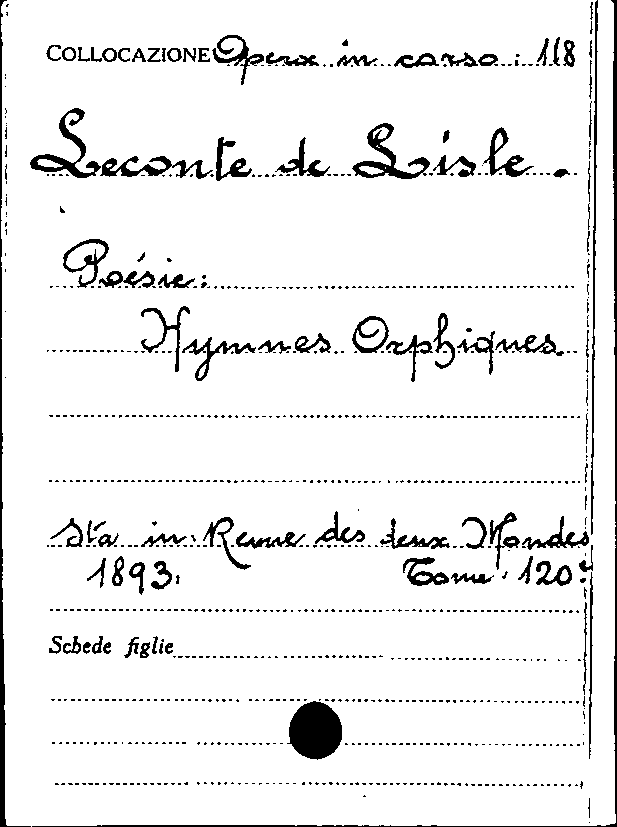 COLLOCAZIONE Opera in corso : 118
Leconte de Lisle.
Poésie:
Hymnes Orphiques.
Sta in: Revue des deux Mondes
1893. Tome. 120:
Schede figlie